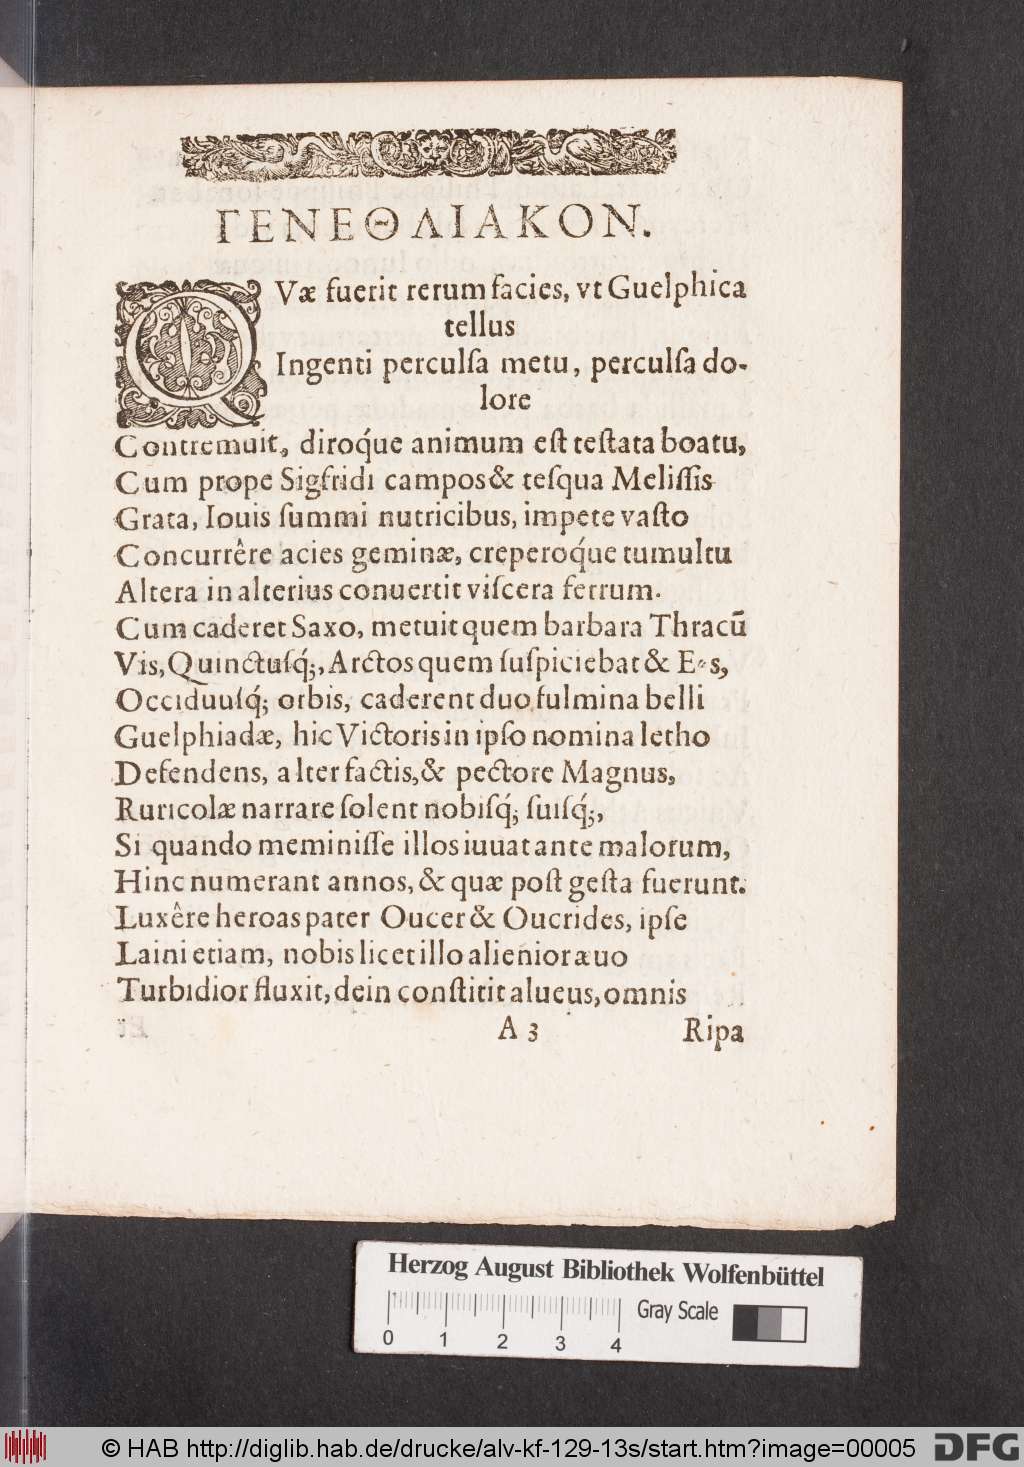 ΓΕΝΕΘΛΙΑΚΟΝ.
QVæ fuerit rerum facies, vt Guelphica
tellus
Ingenti perculſa metu, perculſa do-
lore
Contremuit, diroq́ue animum eſt teſtata boatu,
Cum prope Sigfridi campos & teſqua Meliſſis
Grata, Iouis ſummi nutricibus, impete vaſto
Concurrêre acies geminæ, creperoq́ue tumultu
Altera in alterius conuertit viſcera ferrum.
Cum caderet Saxo, metuit quem barbara Thracũ
Vis, Quinctuſq́;, Arctos quem ſuſpiciebat &
Occiduuſq́; orbis, caderent duo fulmina belli
Guelphiadæ, hic Victoris in ipſo nomina letho
Defendens, alter factis, & pectore Magnus,
Ruricolæ narrare ſolent nobiſq́; ſuiſq́;,
Si quando meminiſſe illos iuuat ante malorum,
Hinc numerant annos, & quæ poſt geſta fuerunt.
Luxêre heroas pater Oucer & Oucrides, ipſe
Laini etiam, nobis licet illo alienior æuo
Turbidior fluxit, dein conſtitit alueus, omnis
A 3 Ripa
Herzog August Bibliothek Wolfenbüttel
0 1 2 3 4
Gray Scale
© HAB http://diglib.hab.de/drucke/alv-kf-129-13s/start.htm?image=00005
DFG